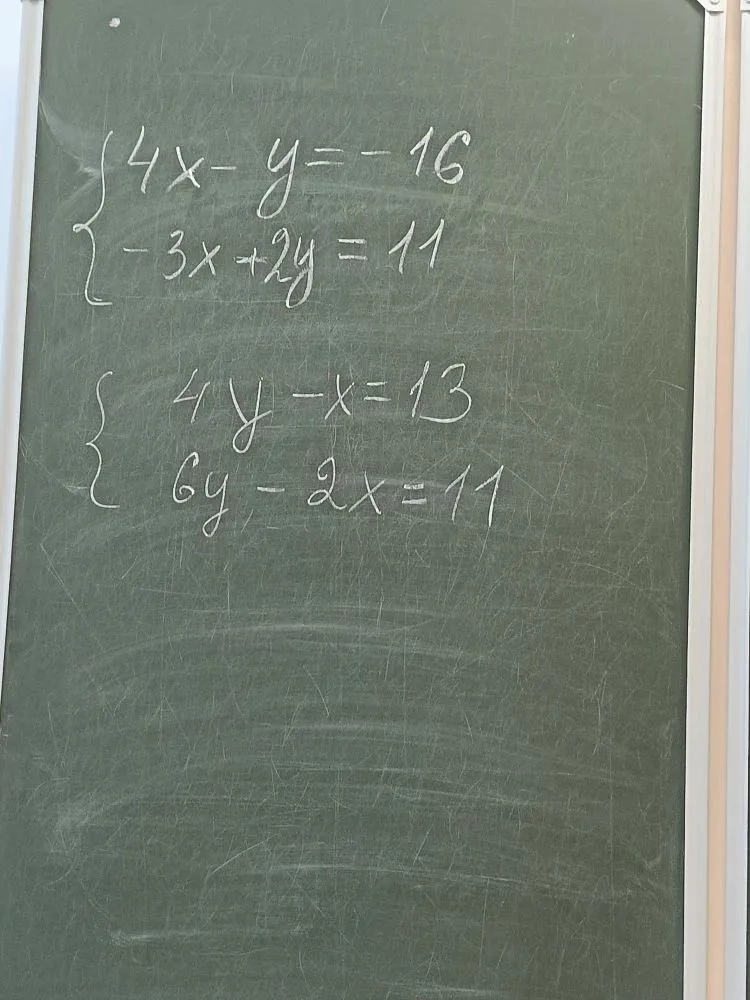 4x - y = -16
-3x + 2y = 11
4y - x = 13
6y - 2x = 11